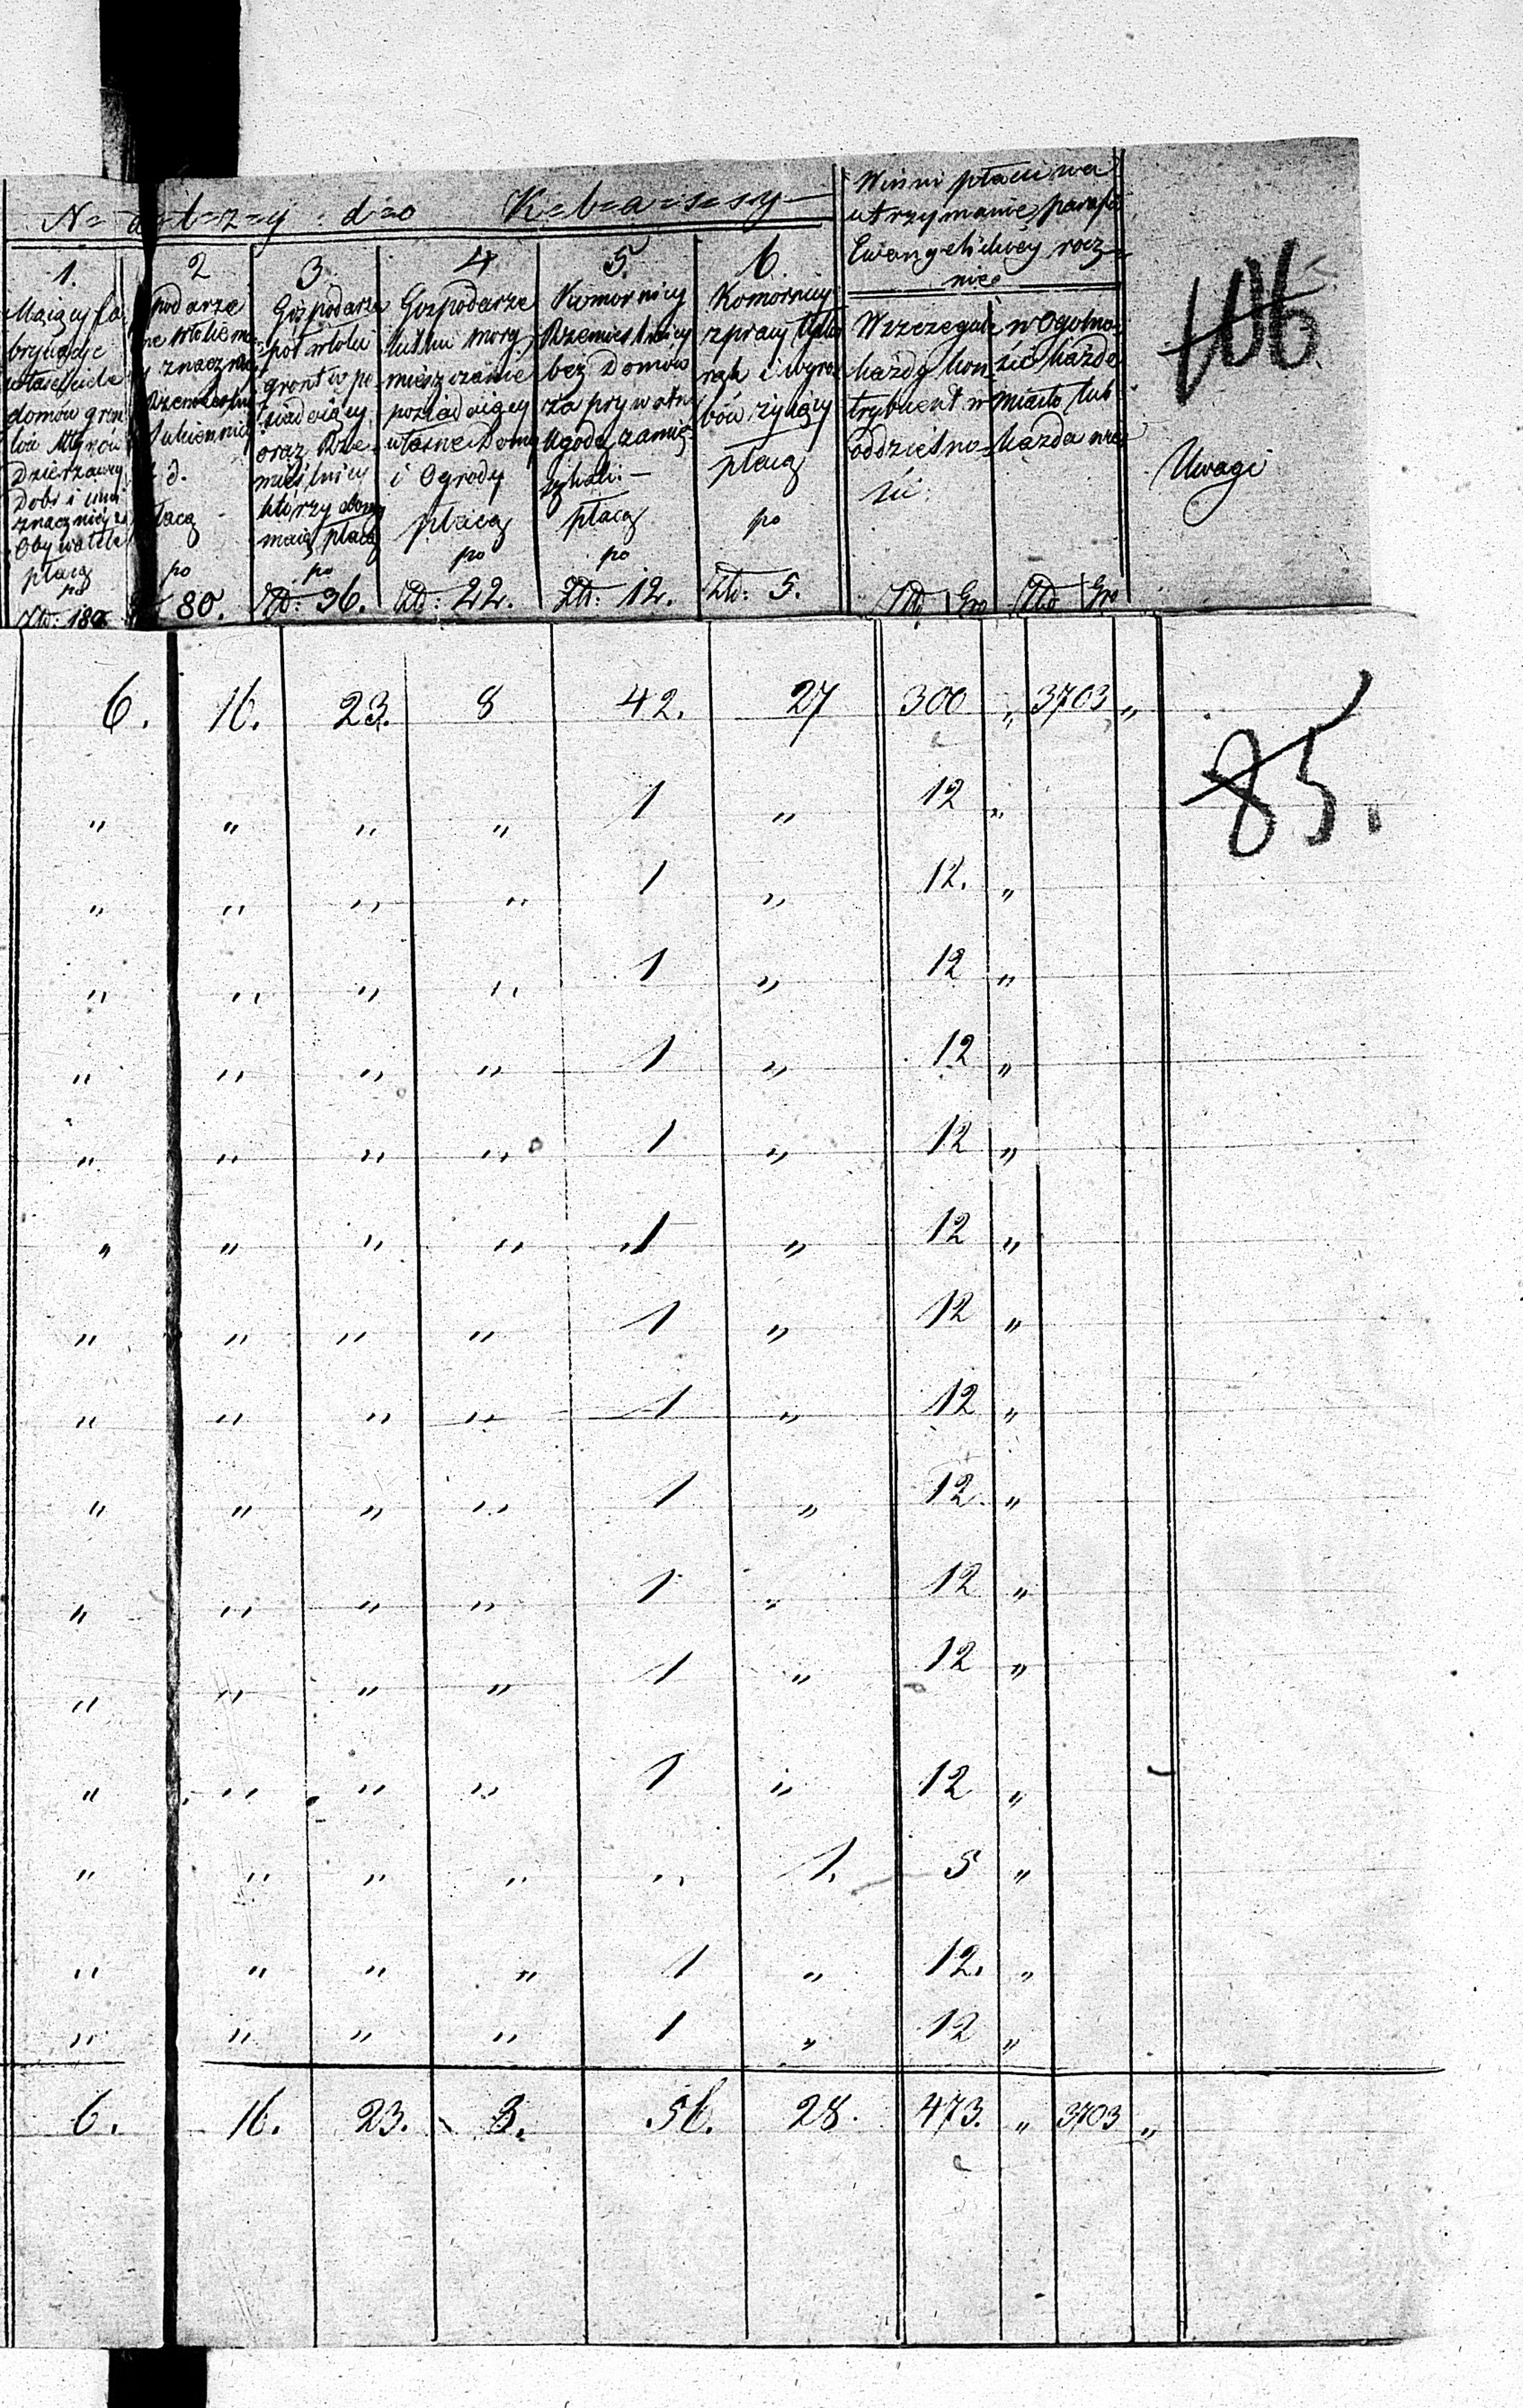 N= a=l=e=z=ą d=o K=l=a=s=s=y
Winni płacić na
utrzymanie parafii
Ewangelickiey rocz=
nie
106
1. 2 3. 4 5. 6.
Maiący fa
bryki
właściciele
domów
Młynów
Dzierżawcy
Dóbr i inni
znacznieysi
Obywatele
płacą
po
Złt: 180
podarze
znaczni
Sukiennicy
płacą
po
80.
Gospodarze
pół włóki
gruntu po
siadaiący
oraz Rze=
mieślnicy
którzy
maią płacą
po
Złt: 36.
Gospodarze
kilku morg.
mieszczanie
posiadaiący
własne Domy
i Ogrody
płacą
po
Złt: 22.
Komornicy
Rzemieślnicy
bez Domów
za prywatną
Ugodą zamie
szkali.
płacą
po
Złt: 12.
Komornicy
z pracy tylko
rąk i wyro=
bów żyiący
płacą
po
Złt: 5.
W szczegule
każdy kon
trybuent w
oddzielno=
ści.
Złt Gro
w Ogólno=
ści każde
Miasto lub
każda wieś
Złt Gro
Uwagi
6. 16. 23. 8 42. 27 300 „ 3703 „
85.
„ „ „ „ 1 „ 12 „
„ „ „ „ 1 „ 12. „
„ „ „ „ 1 „ 12 „
„ „ „ „ 1 „ 12 „
„ „ „ „ 1 „ 12 „
„ „ „ „ 1 „ 12 „
„ „ „ „ 1 „ 12 „
„ „ „ „ 1 „ 12 „
„ „ „ „ 1 „ 12. „
„ „ „ „ 1 „ 12 „
„ „ „ „ 1 „ 12 „
„ „ „ „ 1 „ 12 „
„ „ „ „ „ 1. 5 „
„ „ „ „ 1 „ 12. „
„ „ „ „ 1 „ 12 „
6. 16. 23. 8. 56. 28. 473. „ 3703 „